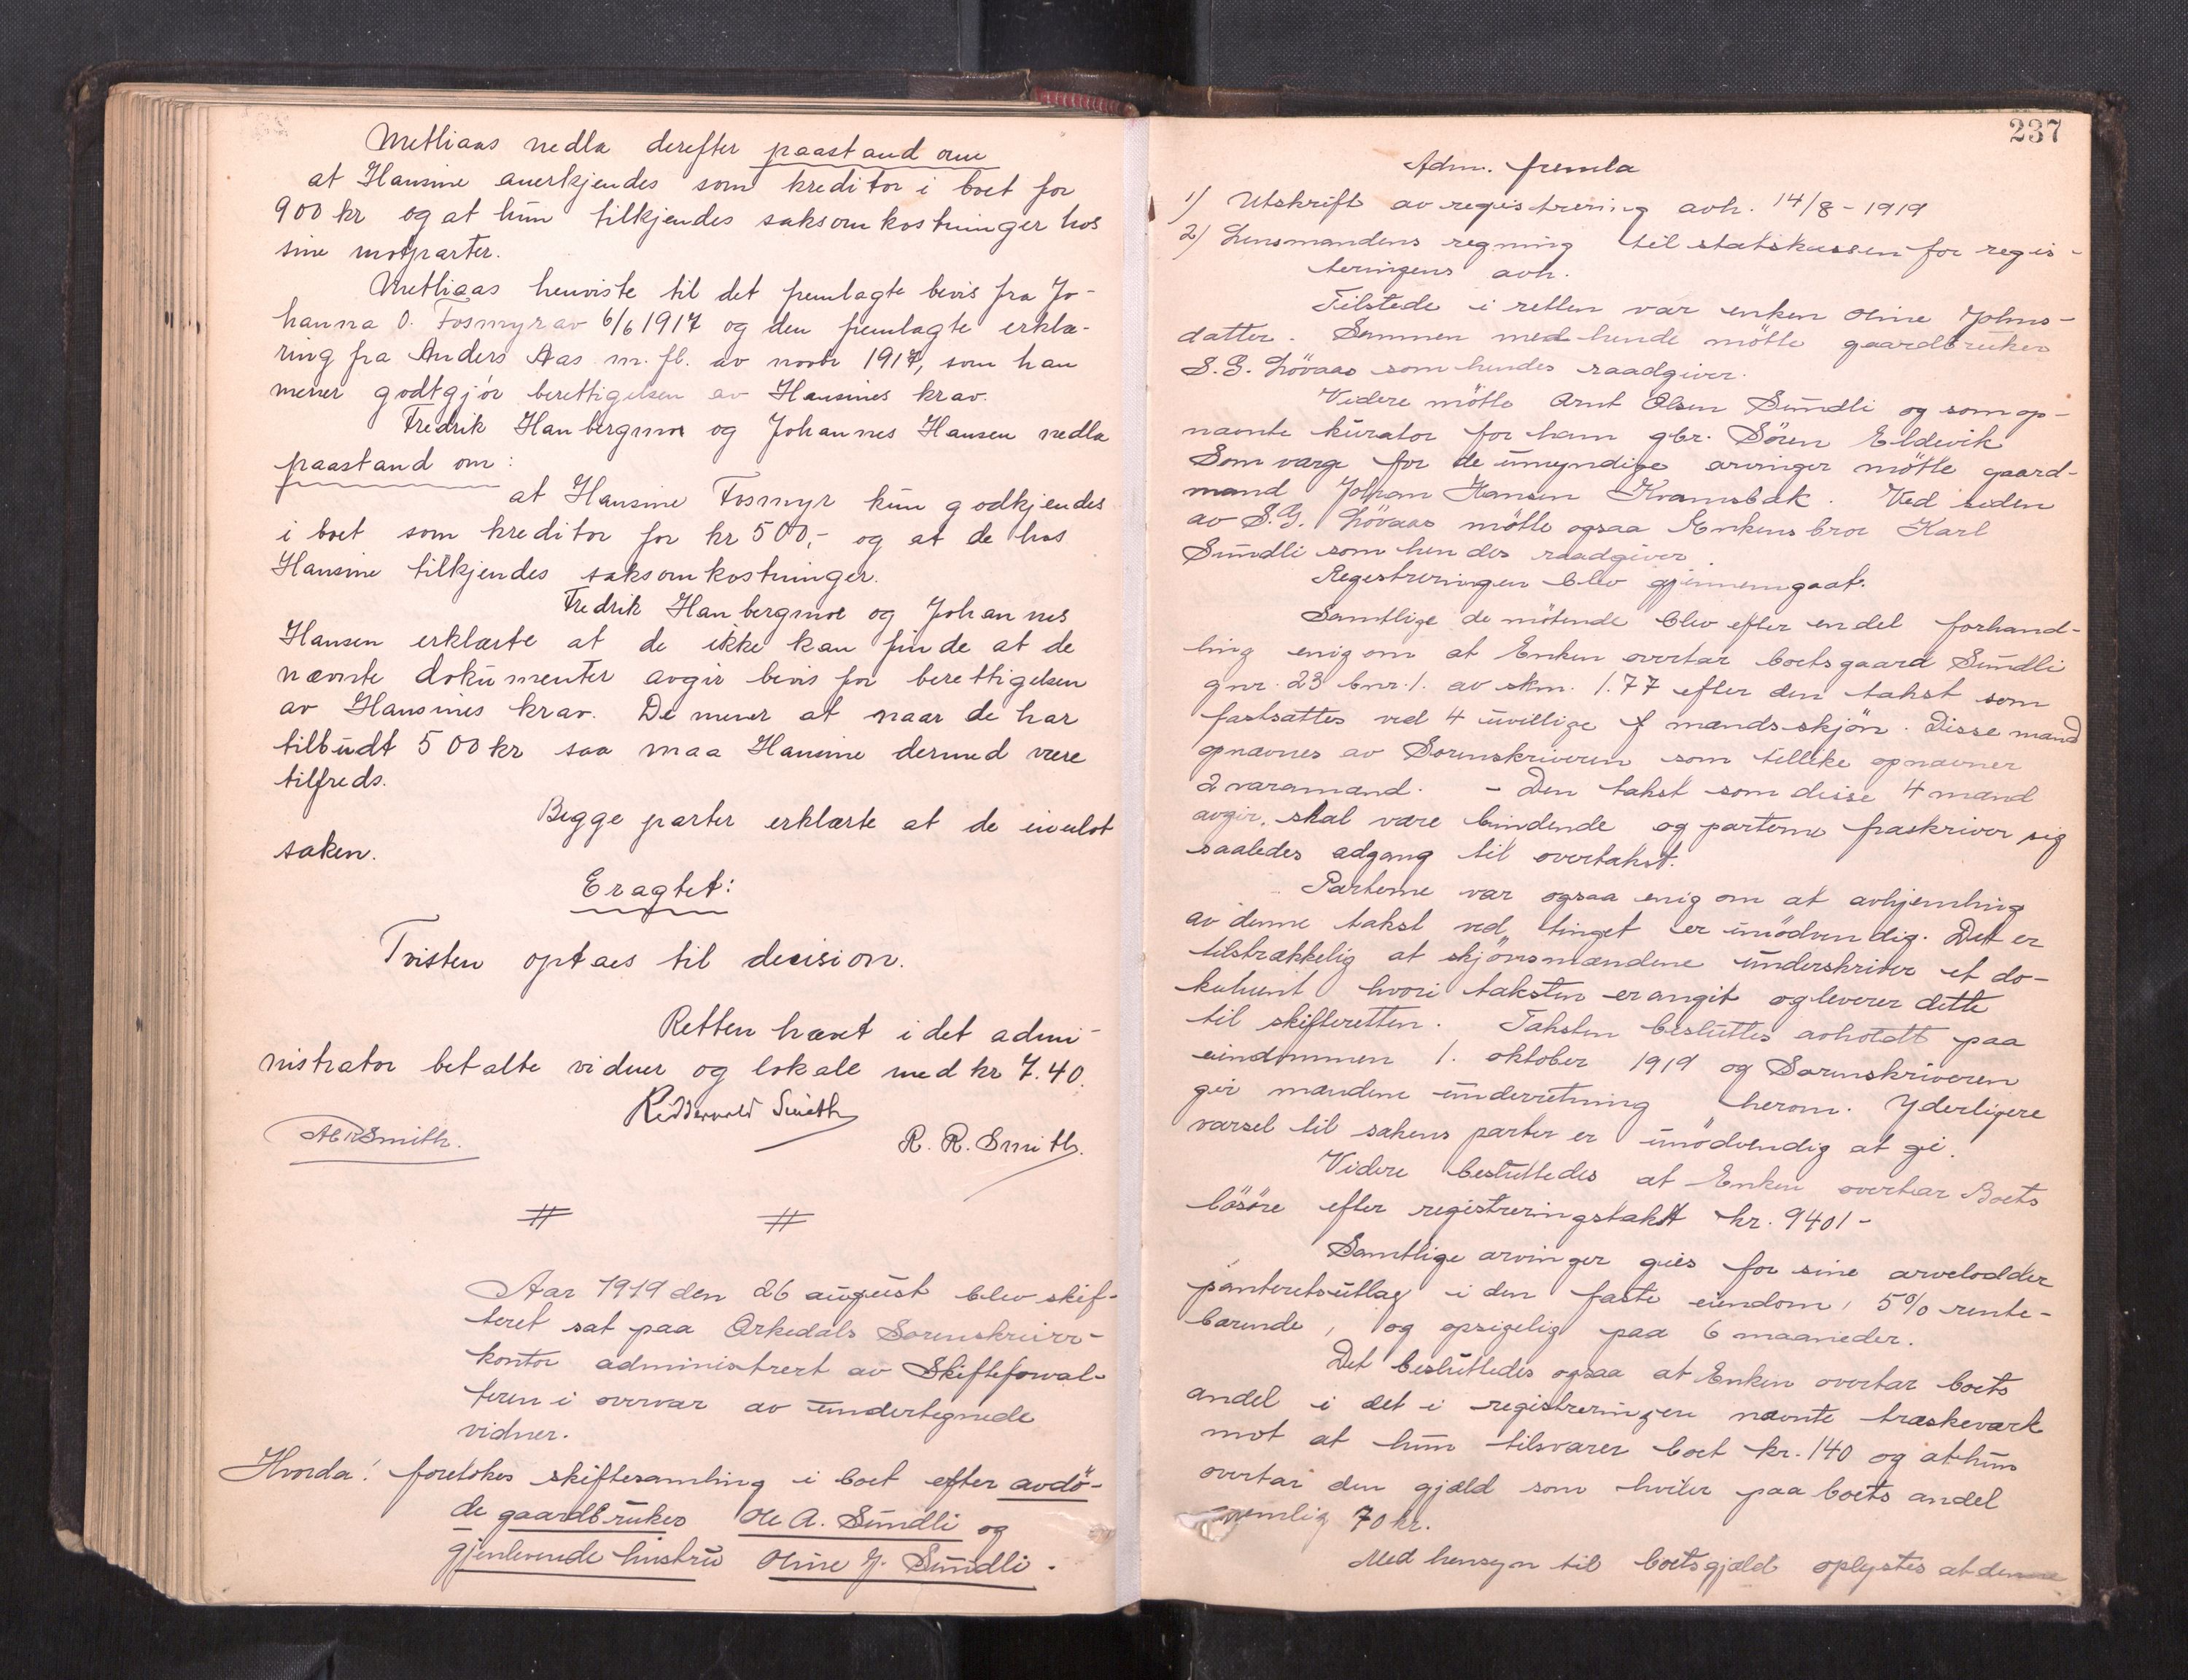 Metliaas nedla derefter paastand om
at Hansine anerkjendes som kreditor i boet for
900 kr og at hun tilkjendes saksomkostninger hos
sine motparter.
Metliaas henviste til det fremlagte bevis fra Jo-
hanna O. Fosmyr av 6/6 1917 og den fremlagte erklæ-
ring fra Anders Aas m. fl. av novbr 1917, som han
mener godtgjør berettigelsen av Hansines krav.
Fredrik Haubergmoe og Johannes Hansen nedla
paastand om:
at Hansine Fosmyr kun godkjendes
i boet som kreditor for kr 500,- og at de hos
Hansine tilkjendes saksomkostninger.
Fredrik Haubergmoe og Johannes
Hansen erklærte at de ikke kan finde at de
nævnte dokumenter avgir bevis for berettigelsen
av Hansines krav. De mener at naar de har
tilbudt 500 kr saa maa Hansine dermed være
tilfreds.
Begge parter erklærte at de indlot
saken.
Eragtet:
Tvisten optaes til decision.
Retten hævet idet admi-
nistrator betalte vidner og lokale med kr 7.40.
Riddervold Smith
R. R. Smith.
Smith.
# #
Aar 1919 den 26 august blev skif-
teret sat paa Orkedals Sorenskriver-
kontor administrert av Skifteforval-
teren i overvær av undertegnede
vidner.
Hvorda: foretokes skiftesamling i boet efter avdö-
de gaardbruker Ole A. Sundli og
gjenlevende hustru Oline J. Sundli.
237
Adm. fremla
1) Utskrift av registrering avh. 14/8 - 1919
2) Lensmandens regning til statskassen for regis-
teringens avh.
Tilstede i retten var enken Oline Johns-
datter. Sammen med hende mötte gaardbruker
S. G. Lövaas som hendes raadgiver.
Videre mötte Arnt Olsen Sundli og som op-
nævnte kurator for ham gbr. Sören Eldevik
Som værge for de umyndige arvinger mötte gaard-
mand Johan Hansen Kvamsbak. Ved siden
av S. G. Lövaas mötte ogsaa Enkens bror Karl
Sundli som hendes raadgiver.
Registreringen blev gjennemgaat.
Samtlige de mötende blev efter endel forhand-
ling enig om at Enken overtar boets gaard Sundli
gnr. 23 bnr. 1. av skm. 1.77 efter den takst som
fastsattes ved 4 uvillige mænds skjön. Disse mænd
opnævnes av Sorenskriveren som tillike opnævner
2 varamænd. - Den takst som disse 4 mænd
avgir, skal være bindende og parterne fraskriver sig
saaledes adgang til overtakst.
Parterne var ogsaa enig om at avhjemling
av denne takst ved tinget er unödvendig. Det er
tilstrækkelig at skjönsmændene underskriver et do-
kument hvori taksten er angit og leverer dette
til skifteretten. Taksten besluttes avholdt paa
eiendommen 1. oktober 1919 og Sorenskriveren
gir mændene underretning herom. Yderligere
varsel til sakens parter er unödvendig at gi.
Videre besluttedes at Enken overtar Boets
lösöre efter registreringstakst kr. 9401 -
Samtlige arvinger gies for sine arvelodder
panteretsutlæg i den faste eiendom, 5% rente-
bærende, og opsigelig paa 6 maaneder.
Det besluttedes ogsaa at Enken overtar boets
andel i det i registreringen nævnte træskeverk
mot at hun tilsvarer boet kr. 140 og at hun
overtar den gjæld som hviler paa boets andel
nemlig 70 kr.
Med hensyn til boets gjæld oplystes at denne